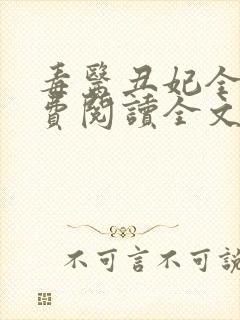 毒醫丑妃全
費閱讀全文
不可言不可說